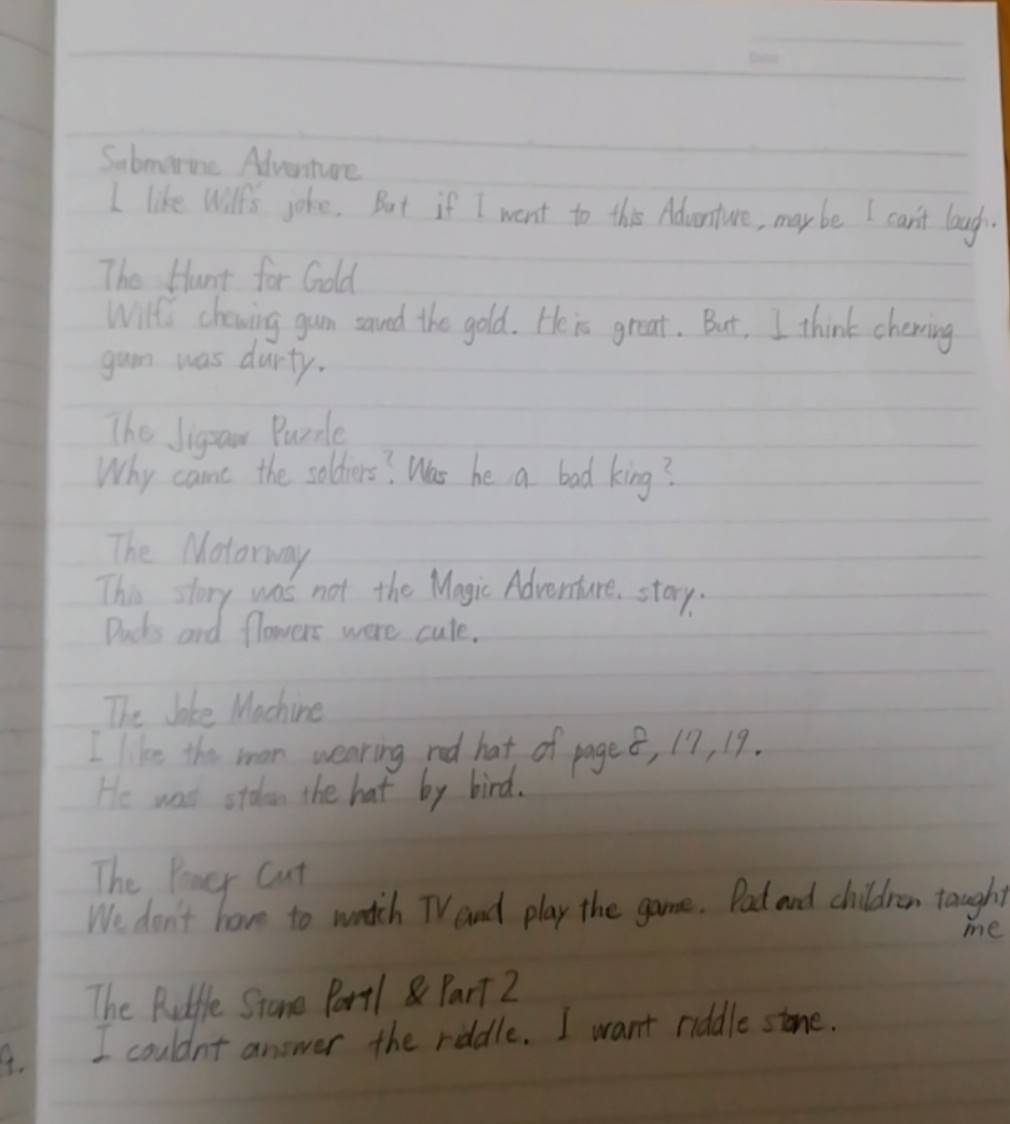 Date
Submarine Adventure
I like Wilf's joke. But if I went to this Adventure, may be I can't laugh.
The Hunt for Gold
Wilf's chewing gum saved the gold. He is great. But, I think chewing
gum was durty.
The Jigsaw Puzzle
Why came the soldiers? Was he a bad king?
The Motorway
This story was not the Magic Adventure. story.
Ducks and flowers were cute.
The Joke Machine
I like the man wearing red hat of page 8, 17, 19.
He was stolen the hat by bird.
The Power Cut
We don't have to watch TV and play the game. Dad and children taught
me
The Riddle Stone Part1 & Part 2
I couldn't answer the riddle. I want riddle stone.